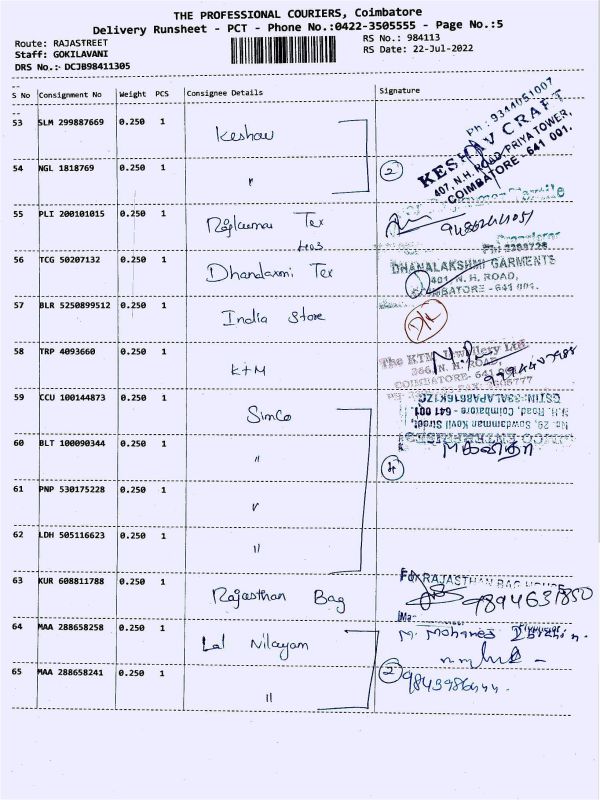 THE PROFESSIONAL COURIERS, Coimbatore
Delivery Runsheet - PCT - Phone No.:0422-3505555 - Page No.:5
Route: RAJASTREET
RS No.: 984113
Staff: GOKILAVANI
RS Date: 22-Jul-2022
DRS No.:- DCJB98411305
S No Consignment No Weight PCS Consignee Details Signature
53 SLM 299887669 0.250 1 Keshav
Ph : 9344051007
KESHAV CRAFT
407, N.H. ROAD, PRIYA TOWER,
COIMBATORE - 641 001.
54 NGL 1818769 0.250 1 "
2
55 PLI 200101015 0.250 1 Rajkumar Tex
Hos
56 TCG 50207132 0.250 1 Dhandaxmi Tex
DHANALAKSHMI GARMENTS
401, N. H. ROAD,
COIMBATORE - 641 001.
1
57 BLR 5250899512 0.250 1 India Store
58 TRP 4093660 0.250 1 KTM
The KTM Jewellery Ltd
266, N. H. ROAD,
COIMBATORE - 641 001
59 CCU 100144873 0.250 1 Simco
No. 29, Sowdamman Kovil Street,
N.H. Road, Coimbatore - 641 001
60 BLT 100090344 0.250 1 "
4
61 PNP 530175228 0.250 1 "
62 LDH 505116623 0.250 1 "
63 KUR 608811788 0.250 1 Rajasthan Bag
For RAJASTHAN BAG HOUSE
9894631850
64 MAA 288658258 0.250 1 Lal Nilayam
M. Mohamed
65 MAA 288658241 0.250 1 "
2